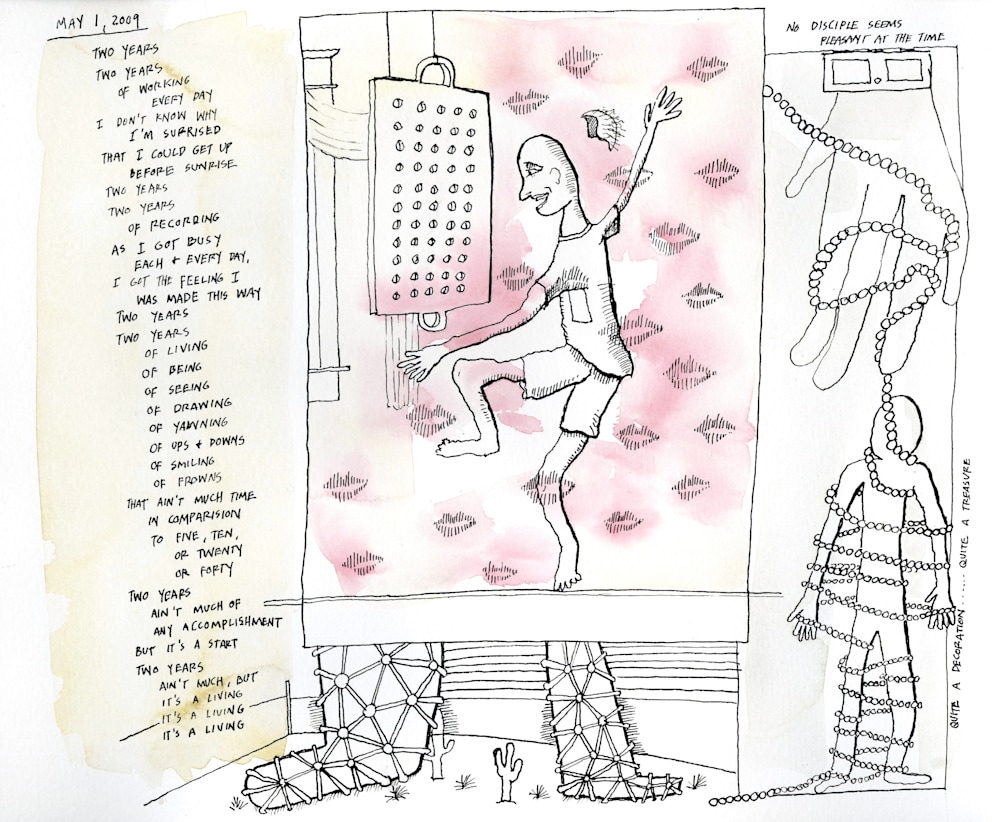 MAY 1, 2009
TWO YEARS
TWO YEARS
OF WORKING
EVERY DAY
I DON'T KNOW WHY
I'M SURRISED
THAT I COULD GET UP
BEFORE SUNRISE
TWO YEARS
TWO YEARS
OF RECORDING
AS I GOT BUSY
EACH + EVERY DAY,
I GOT THE FEELING I
WAS MADE THIS WAY
TWO YEARS
TWO YEARS
OF LIVING
OF BEING
OF SEEING
OF DRAWING
OF YAWNING
OF UPS + DOWNS
OF SMILING
OF FROWNS
THAT AIN'T MUCH TIME
IN COMPARISION
TO FIVE, TEN,
OR TWENTY
OR FORTY
TWO YEARS
AIN'T MUCH OF
ANY ACCOMPLISHMENT
BUT IT'S A START
TWO YEARS
AIN'T MUCH, BUT
IT'S A LIVING
IT'S A LIVING
IT'S A LIVING
NO DISCIPLE SEEMS
PLEASANT AT THE TIME
QUITE A DECORATION...... QUITE A TREASURE